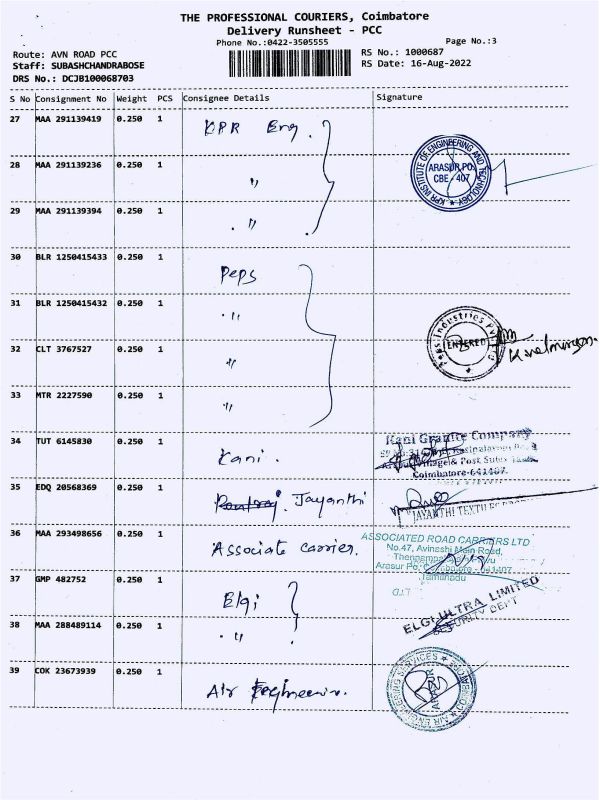 THE PROFESSIONAL COURIERS, Coimbatore
Delivery Runsheet - PCC
Phone No.:0422-3505555
Page No.:3
Route: AVN ROAD PCC
RS No.: 1000687
Staff: SUBASHCHANDRABOSE
RS Date: 16-Aug-2022
DRS No.: DCJB100068703
S No Consignment No Weight PCS Consignee Details Signature
27 MAA 291139419 0.250 1 KPR Eng.
28 MAA 291139236 0.250 1 "
KPR INSTITUTE OF ENGINEERING AND TECHNOLOGY
ARASUR PO.
CBE - 407
29 MAA 291139394 0.250 1 "
30 BLR 1250415433 0.250 1 Peps
31 BLR 1250415432 0.250 1 "
Peps Industries Pvt
ENTERED
32 CLT 3767527 0.250 1 "
33 MTR 2227590 0.250 1 "
34 TUT 6145830 0.250 1 Kani.
Kani Granite Company
Village& Post Sulur
Coimbatore-641407.
35 EDQ 20568369 0.250 1 Jayanthi
JAYANTHI TEXTILE
36 MAA 293498656 0.250 1 Associate carrier.
ASSOCIATED ROAD CARRIERS LTD
No.47, Avinashi Main Road,
Arasur Po, Coimbatore - 641407
Tamilnadu
37 GMP 482752 0.250 1 Elgi
ELGI ULTRA LIMITED
SECURITY DEPT
38 MAA 288489114 0.250 1 "
39 COK 23673939 0.250 1 Air Engineerin.
AIR ENGINEERING SERVICES
ARASUR